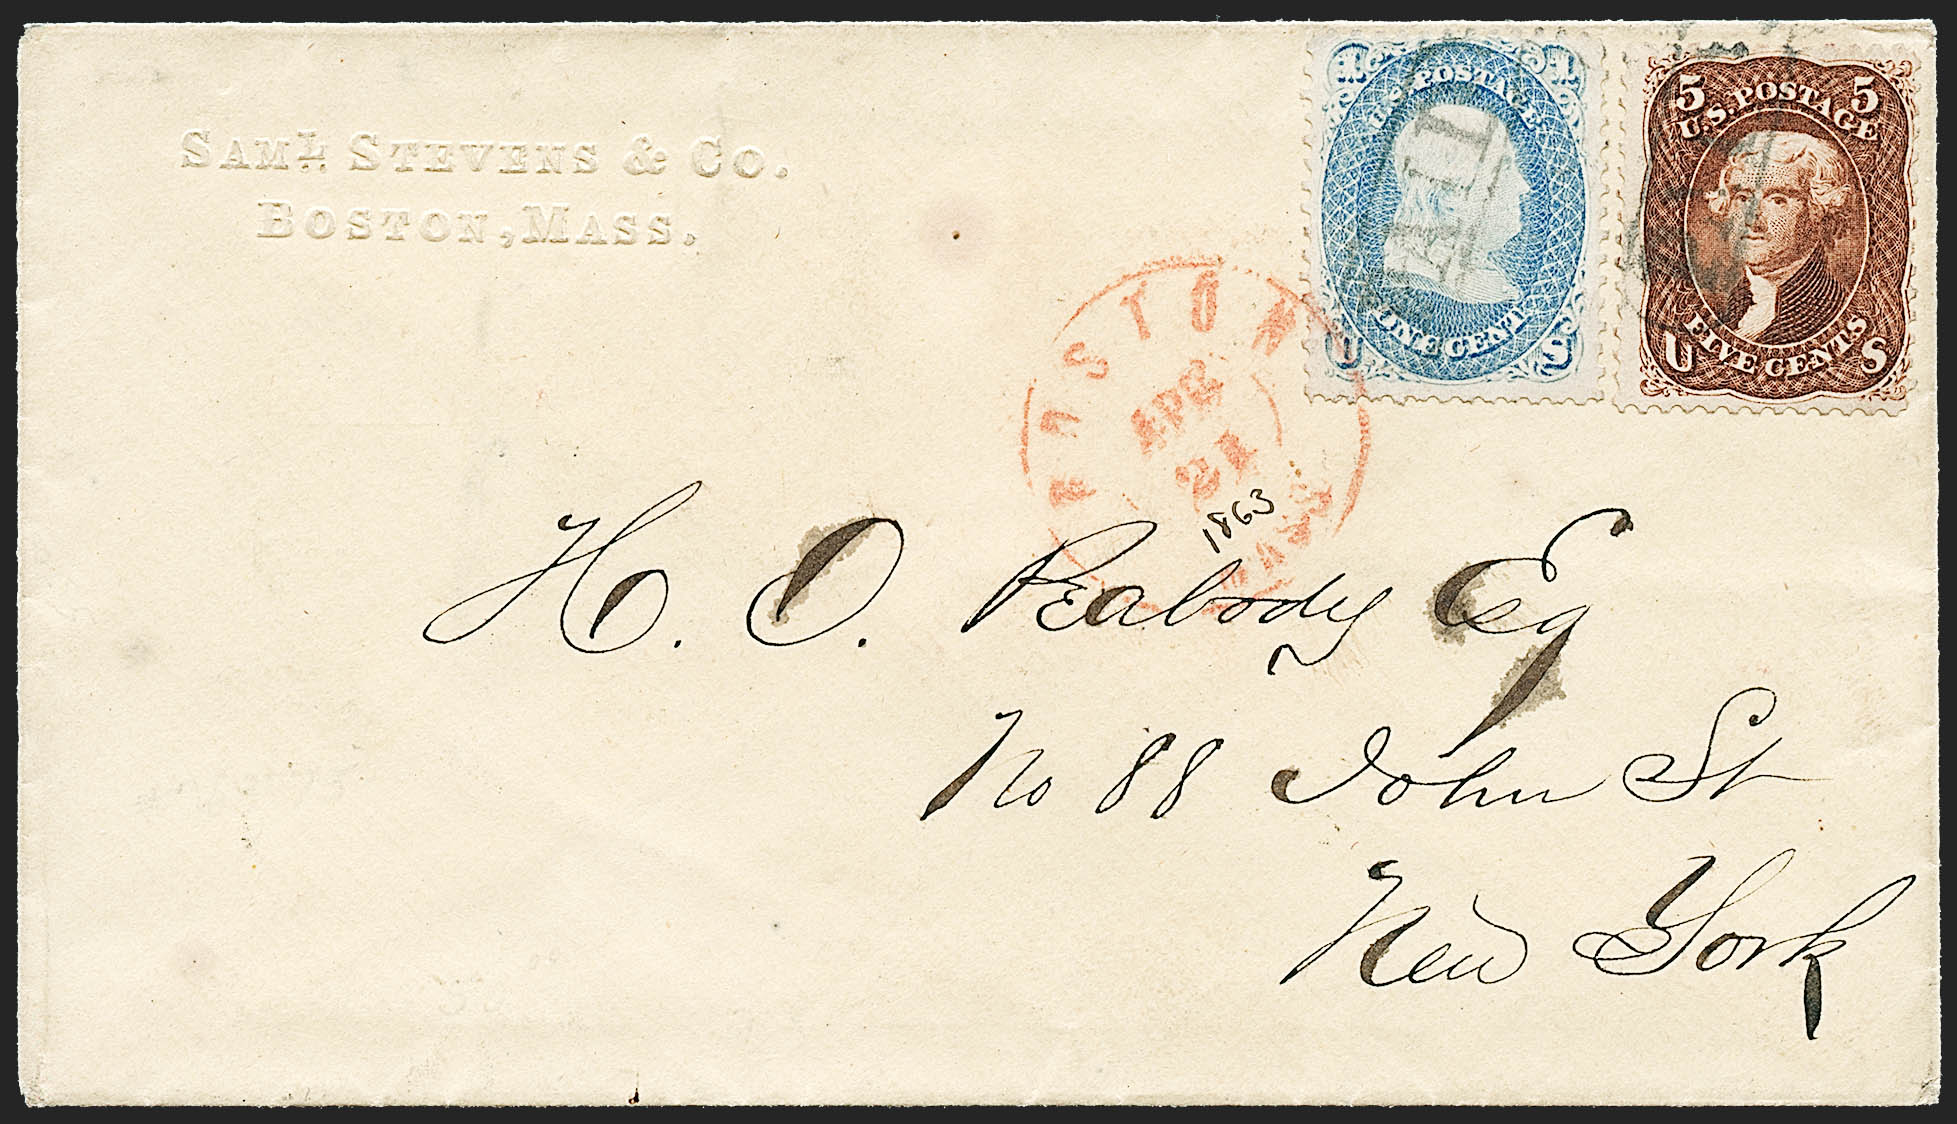 SAMᴸ. STEVENS & CO.
BOSTON, MASS.
1 1
U.S. POSTAGE
ONE CENT
U S
5 5
U.S. POSTAGE
FIVE CENTS
U S
PAID
BOSTON
APR
21
MASS
1863
H. O. Peabody Esq
No 88 John St
New York